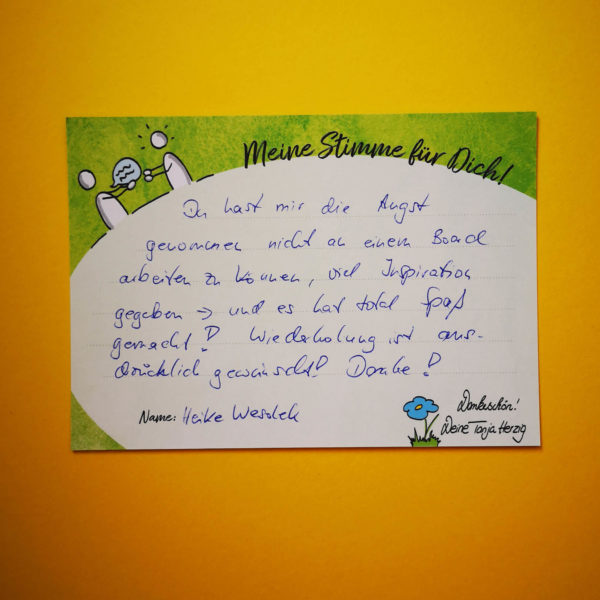 Meine Stimme für Dich!
Du hast mir die Angst
genommen nicht an einem Board
arbeiten zu können, viel Inspiration
gegeben → und es hat total Spaß
gemacht! Wiederholung ist aus-
drücklich gewünscht! Danke!
Name: Heike
Dankeschön!
Deine Tanja Herzig